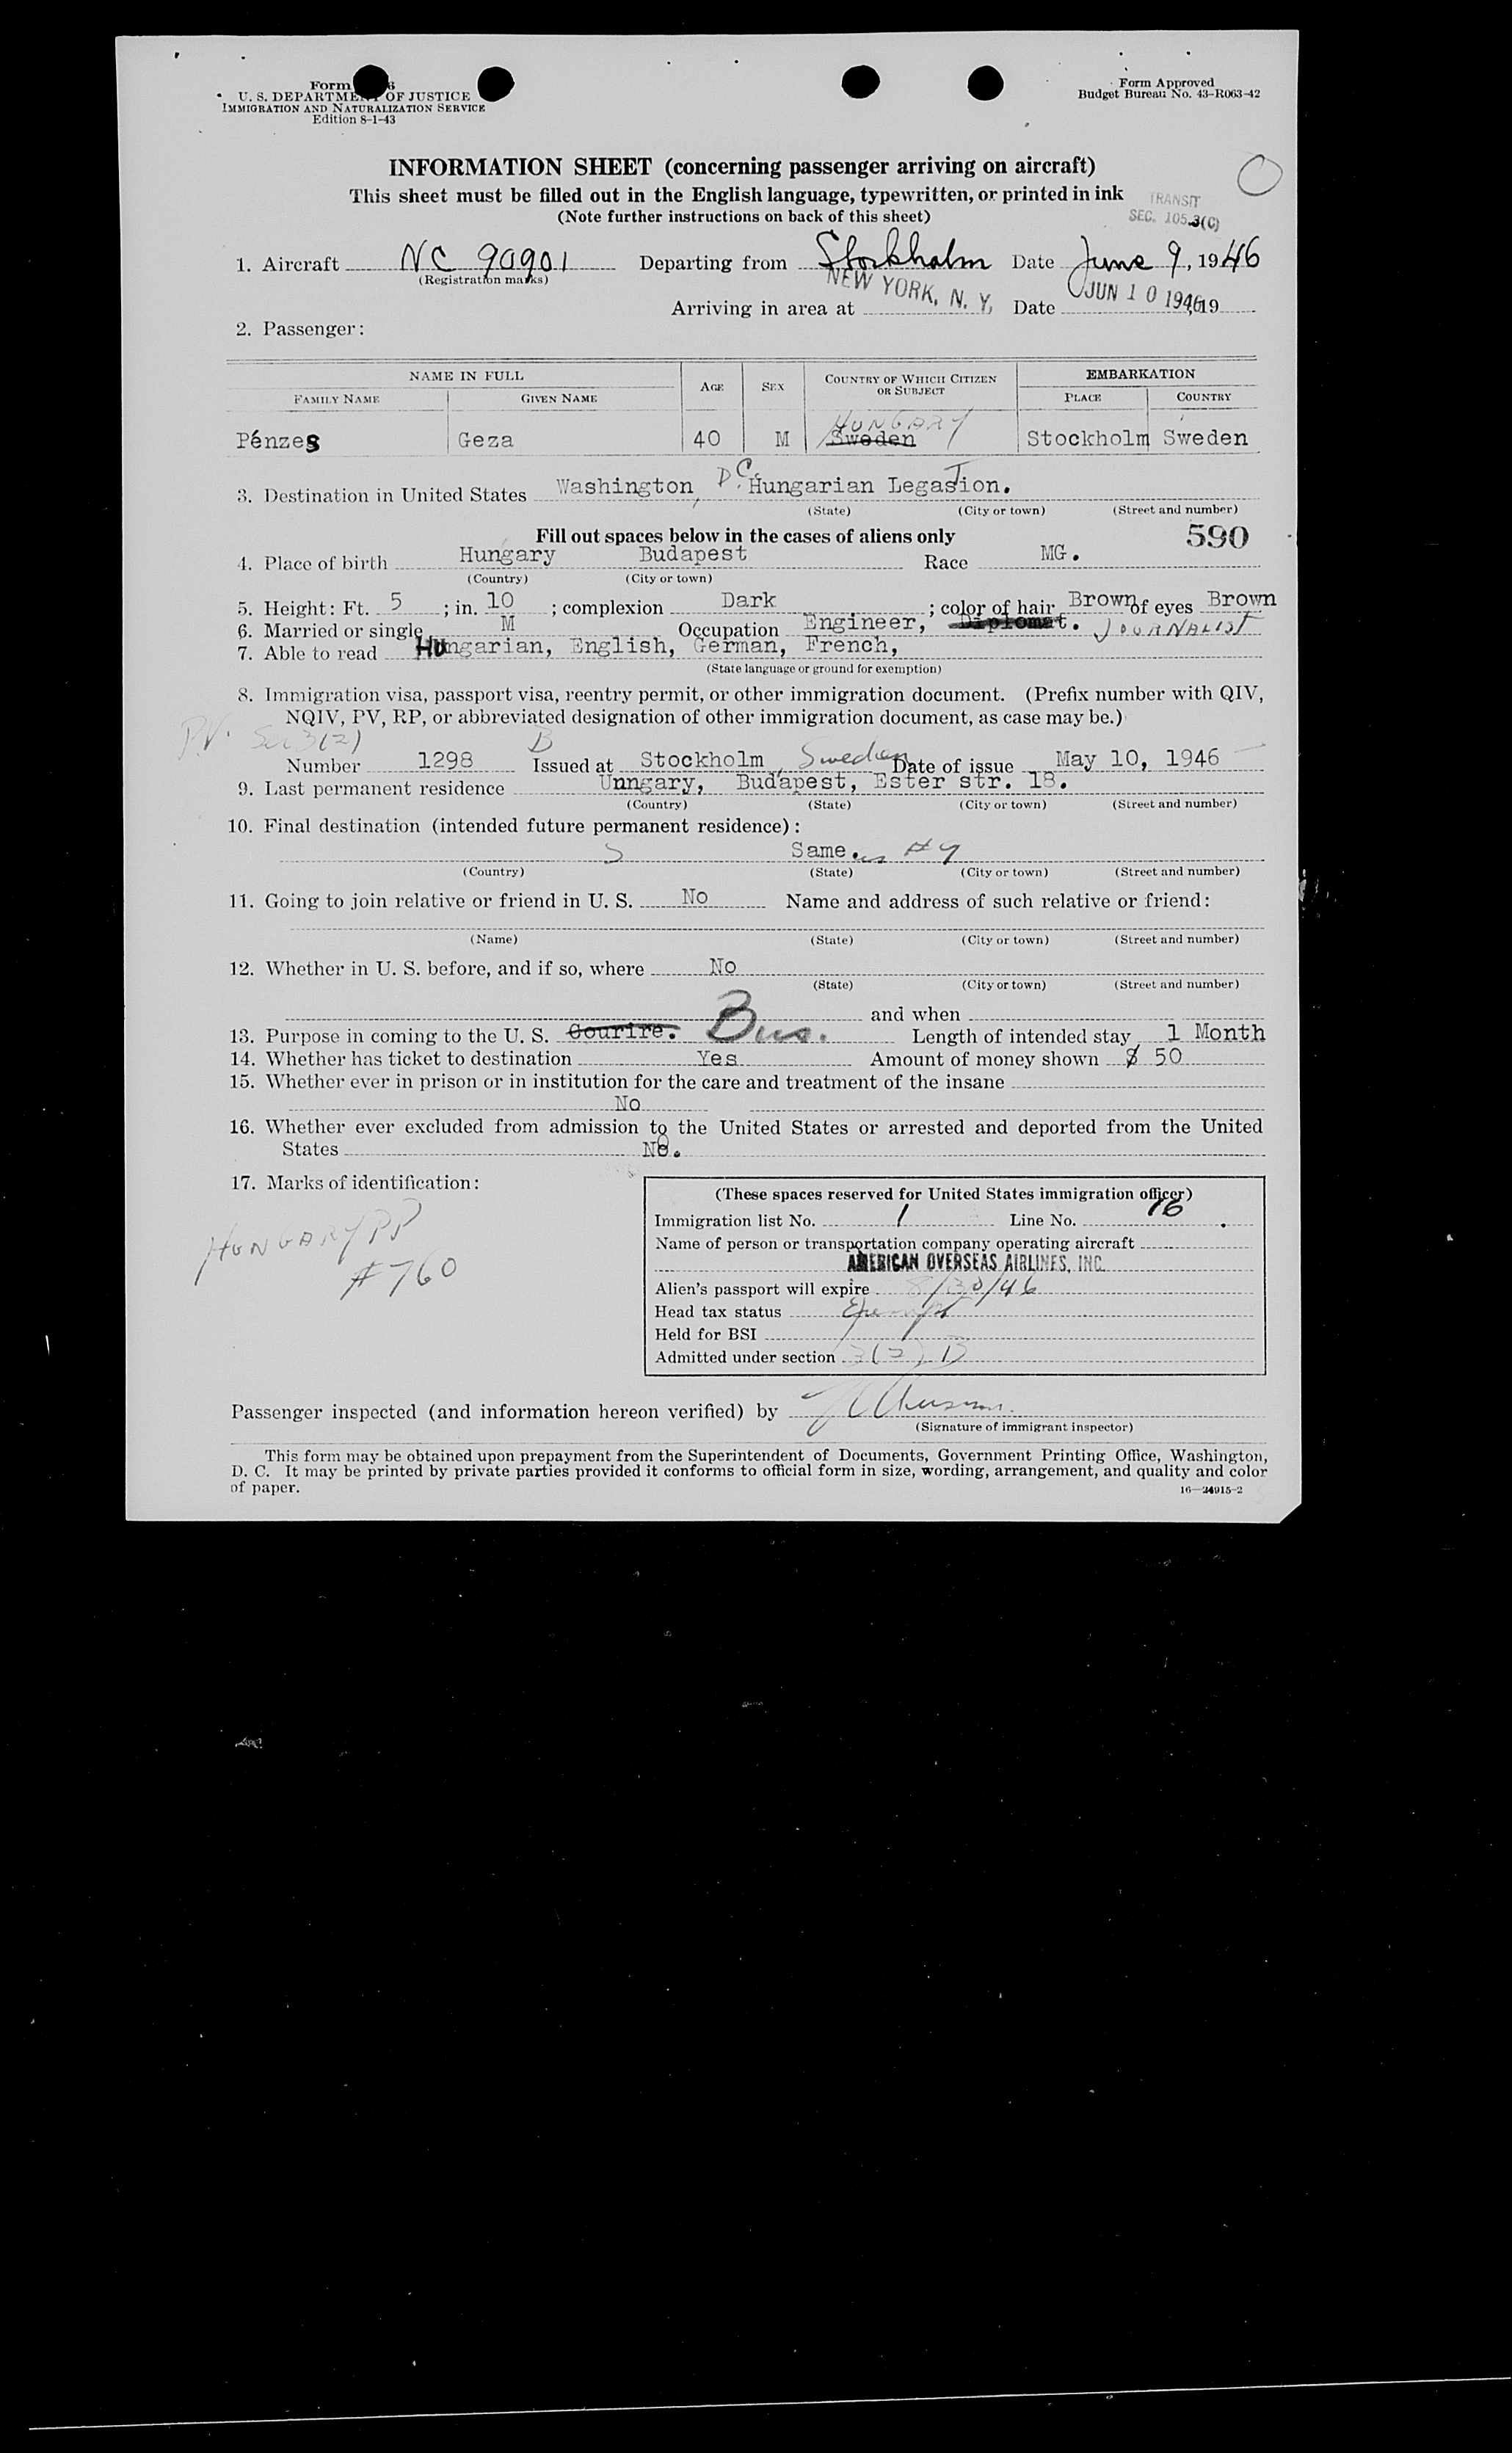 Form
U. S. DEPARTMENT OF JUSTICE
IMMIGRATION AND NATURALIZATION SERVICE
Edition 8-1-43
Form Approved
Budget Bureau No. 43-R063-42
INFORMATION SHEET (concerning passenger arriving on aircraft)
This sheet must be filled out in the English language, typewritten, or printed in ink
(Note further instructions on back of this sheet)
TRANSIT
SEC. 105.3(C)
1. Aircraft NC 90901 Departing from Stockholm Date June 9, 1946
(Registration marks)
Arriving in area at NEW YORK, N. Y. Date JUN 10 1946 19
2. Passenger:
NAME IN FULL AGE SEX COUNTRY OF WHICH CITIZEN OR SUBJECT EMBARKATION
FAMILY NAME GIVEN NAME PLACE COUNTRY
HUNGARY
Pénzes Geza 40 M Sweden Stockholm Sweden
3. Destination in United States Washington, D.C. Hungarian Legation.
(State) (City or town) (Street and number)
Fill out spaces below in the cases of aliens only
590
4. Place of birth Hungary Budapest Race MG.
(Country) (City or town)
5. Height: Ft. 5 ; in. 10 ; complexion Dark ; color of hair Brown of eyes Brown
6. Married or single M Occupation Engineer, Diplomat. JOURNALIST
7. Able to read Hungarian, English, German, French,
(State language or ground for exemption)
8. Immigration visa, passport visa, reentry permit, or other immigration document. (Prefix number with QIV,
NQIV, PV, RP, or abbreviated designation of other immigration document, as case may be.)
P.V. Sec 3(2) B
Number 1298 Issued at Stockholm, Sweden Date of issue May 10, 1946
9. Last permanent residence Unngary, Budapest, Ester str. 18.
(Country) (State) (City or town) (Street and number)
10. Final destination (intended future permanent residence):
Same. as #9
(Country) (State) (City or town) (Street and number)
11. Going to join relative or friend in U. S. No Name and address of such relative or friend:
(Name) (State) (City or town) (Street and number)
12. Whether in U. S. before, and if so, where No
(State) (City or town) (Street and number)
and when
13. Purpose in coming to the U. S. Courire. Bus. Length of intended stay 1 Month
14. Whether has ticket to destination Yes Amount of money shown $ 50
15. Whether ever in prison or in institution for the care and treatment of the insane
No
16. Whether ever excluded from admission to the United States or arrested and deported from the United
States No.
17. Marks of identification:
HUNGARY PP
#760
(These spaces reserved for United States immigration officer)
Immigration list No. 1 Line No. 16
Name of person or transportation company operating aircraft
AMERICAN OVERSEAS AIRLINES, INC.
Alien's passport will expire 8/30/46
Head tax status Exempt
Held for BSI
Admitted under section 3(2) B
Passenger inspected (and information hereon verified) by
(Signature of immigrant inspector)
This form may be obtained upon prepayment from the Superintendent of Documents, Government Printing Office, Washington,
D. C. It may be printed by private parties provided it conforms to official form in size, wording, arrangement, and quality and color
of paper.
16—24915-2